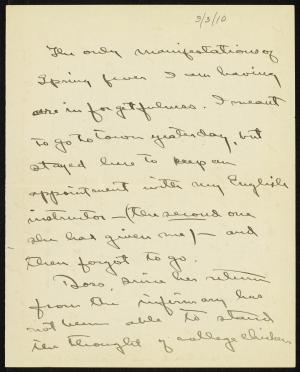 3/3/10
The only manifestations of
Spring fever I am having
are in forgetfulness. I meant
to go to town yesterday, but
stayed here to keep an
appointment with my English
instructor – (the second one
she has given me) – and
then forgot to go.
Doss, since her return
from the infirmary has
not been able to stand
the thought of college chicken